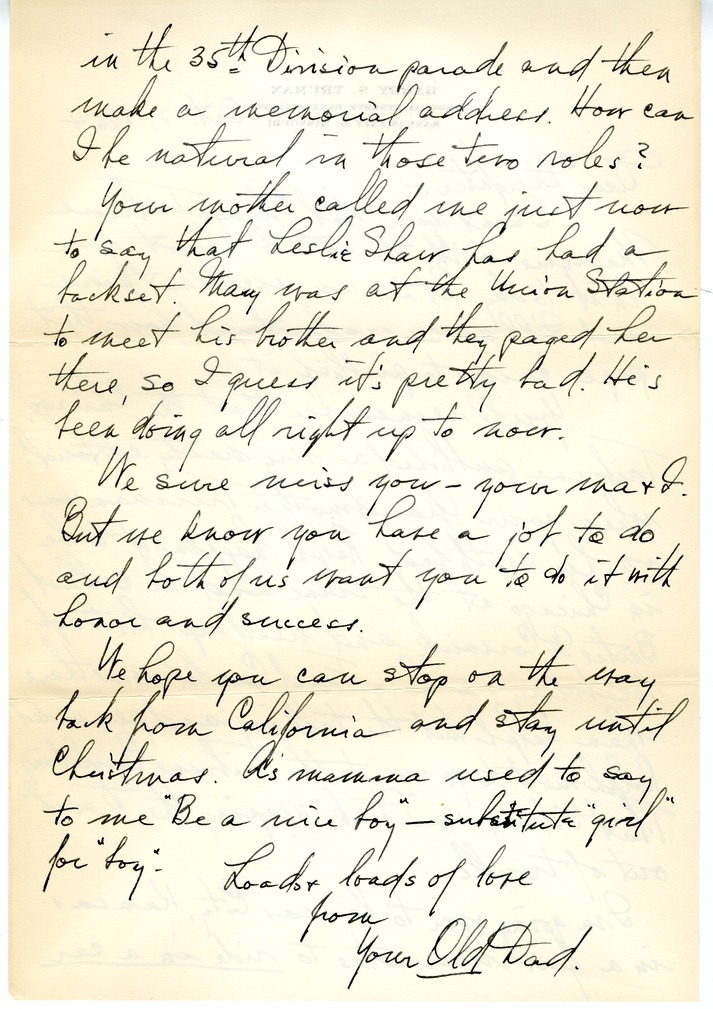 in the 35th Division parade and then
make a memorial address. How can
I be natural in those two roles?
Your mother called me just now
to say that Leslie Shaw has had a
backset. Mary was at the Union Station
to meet his brother and they paged her
there, so I guess it's pretty bad. He's
been doing all right up to now.
We sure miss you – your ma & I.
But we know you have a job to do
and both of us want you to do it with
honor and success.
We hope you can stop on the way
back from California and stay until
Christmas. As mamma used to say
to me "Be a nice boy" – substitute "girl"
for "boy".
Loads & loads of love
from
Your Old Dad.